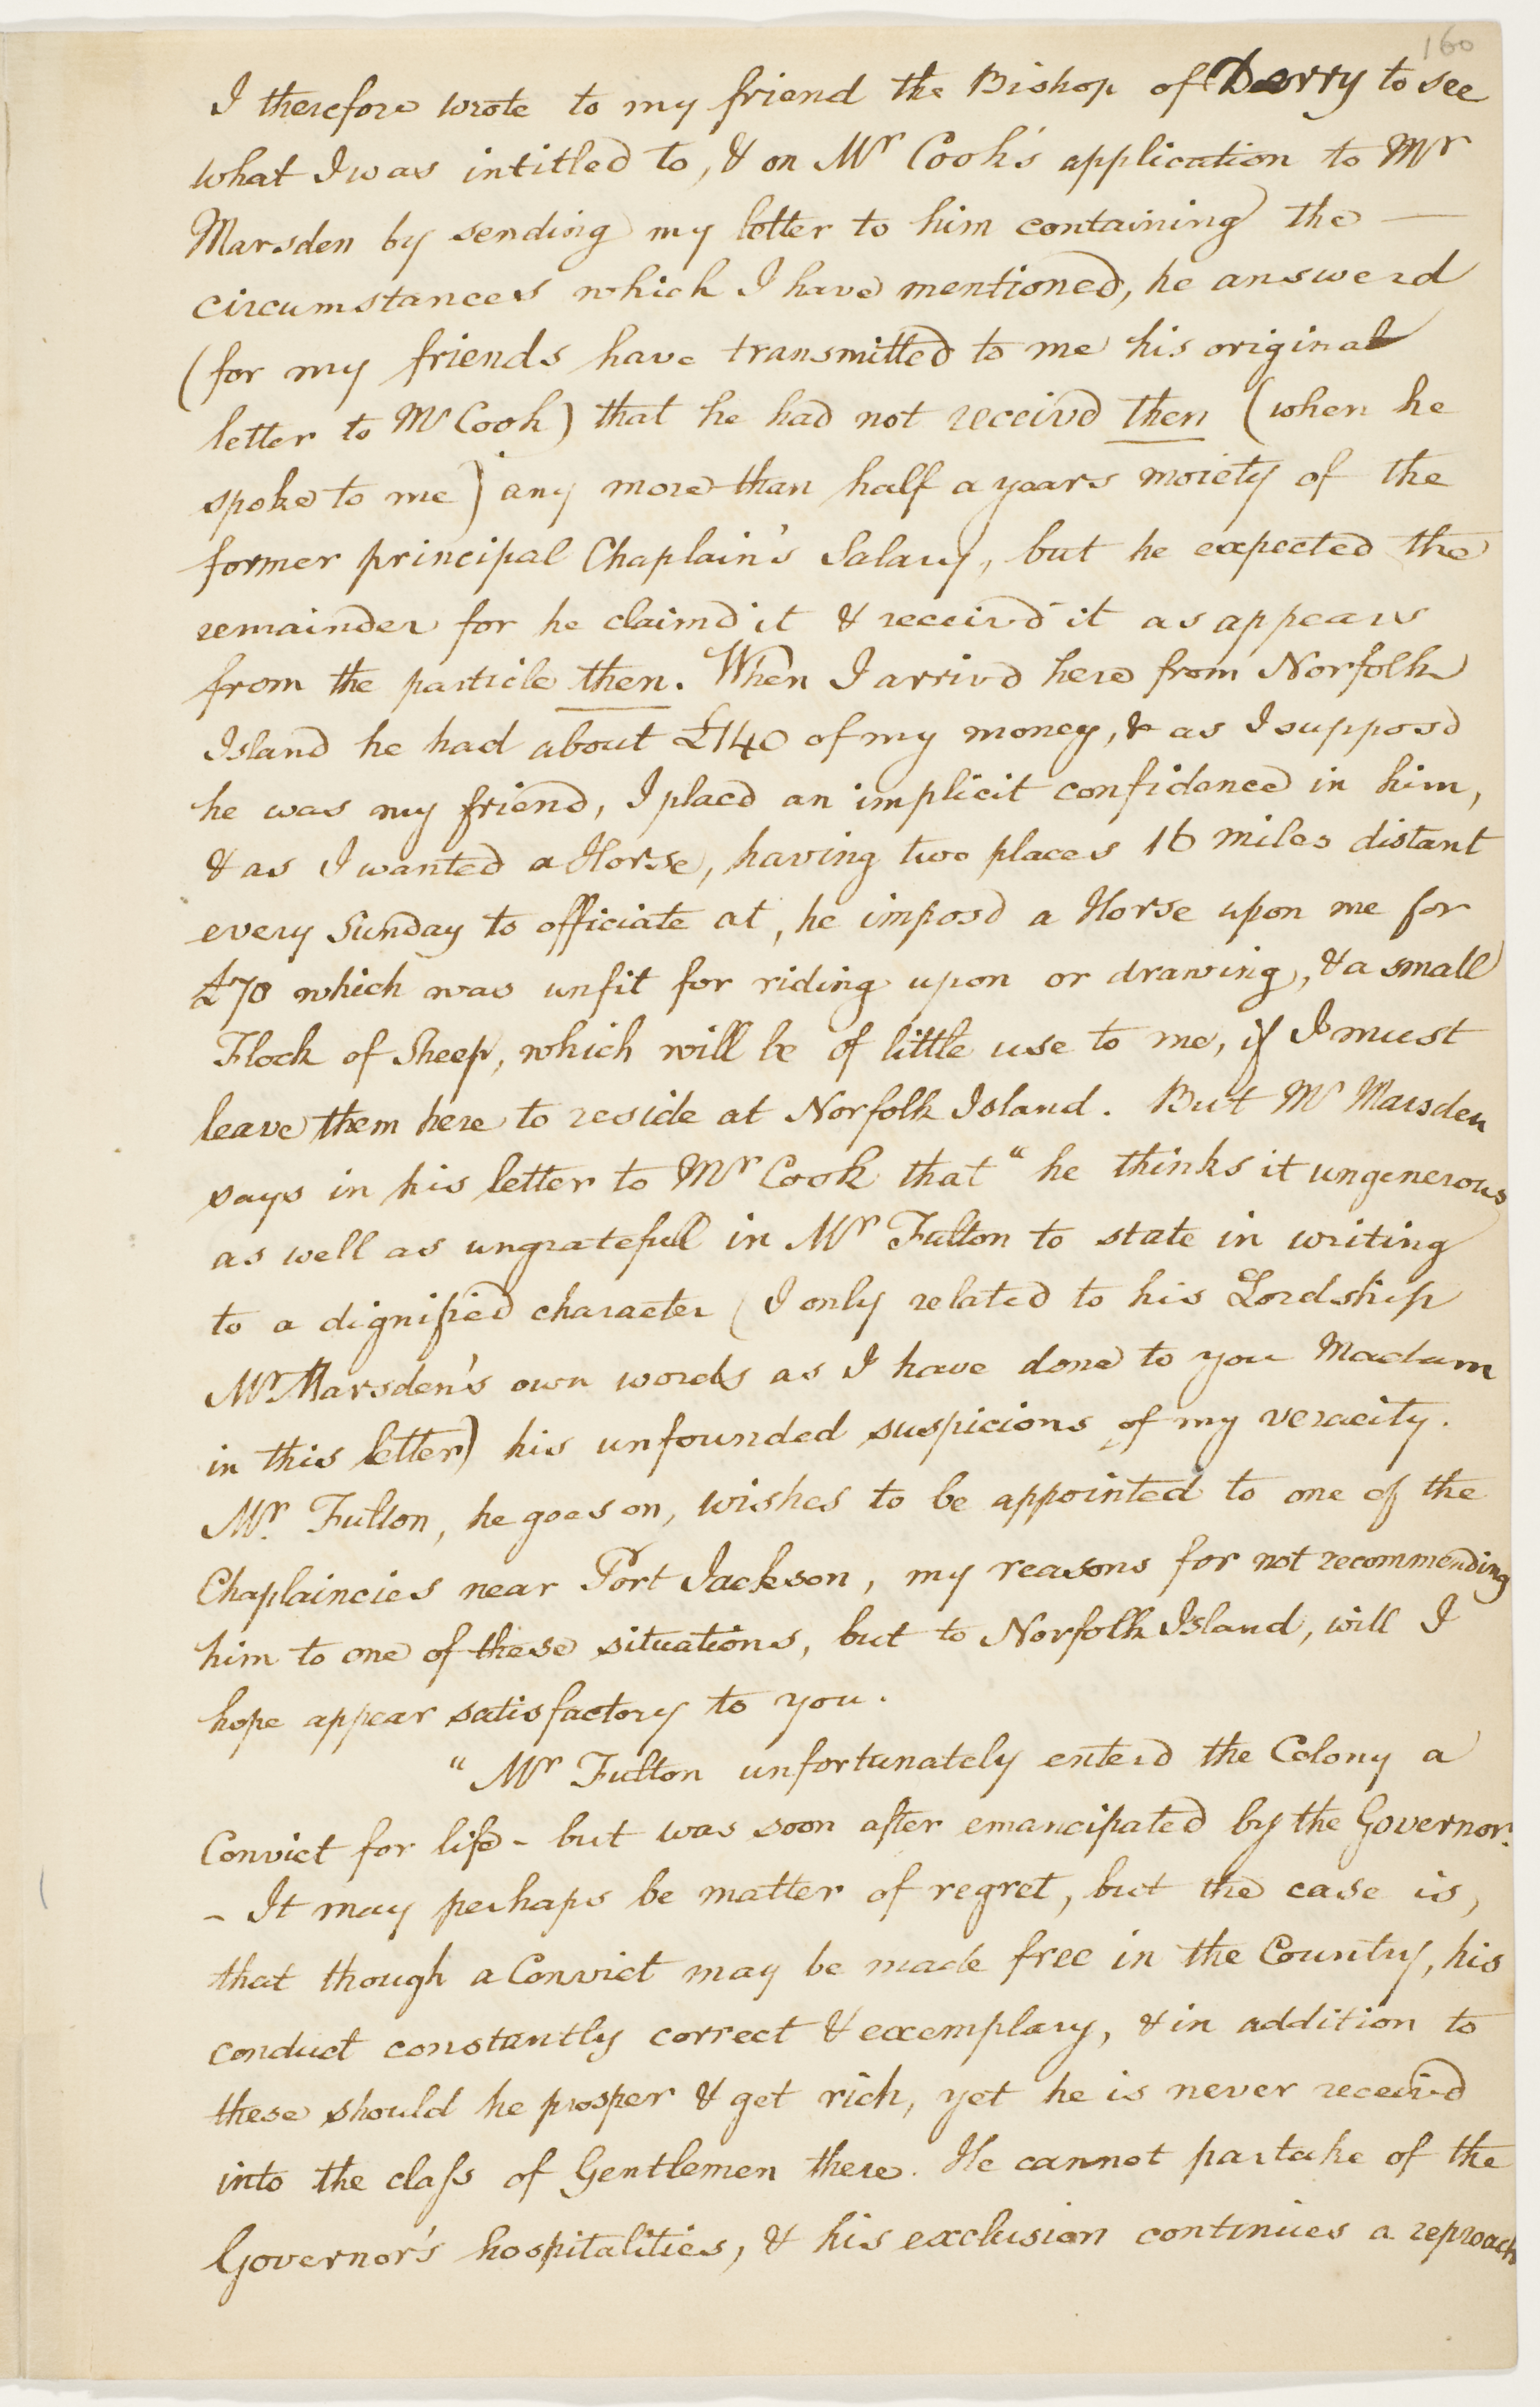 160
I therefore wrote to my friend the Bishop of Derry to see
what I was intitled to, & on Mr Cook's application to Mr
Marsden by sending my letter to him containing the —
circumstances which I have mentioned, he answerd
(for my friends have transmitted to me his original
letter to Mr Cook) that he had not receivd then (when he
spoke to me) any more than half a years moiety of the
former principal Chaplain's Salary, but he expected the
remainder for he claimd it & receivd it as appears
from the particle then. When I arrivd here from Norfolk
Island he had about £140 of my money, & as I supposd
he was my friend, I placd an implicit confidence in him,
& as I wanted a Horse, having two places 16 miles distant
every Sunday to officiate at, he imposd a Horse upon me for
£70 which was unfit for riding upon or drawing, & a small
Flock of Sheep, which will be of little use to me, if I must
leave them here to reside at Norfolk Island. But Mr Marsden
says in his letter to Mr Cook that " he thinks it ungenerous
as well as ungratefull in Mr Fulton to state in writing
to a dignified character (I only related to his Lordship
Mr Marsden's own words as I have done to you Madam
in this letter) his unfounded suspicions of my veracity.
Mr. Fulton, he goes on, wishes to be appointed to one of the
Chaplaincies near Port Jackson, my reasons for not recommending
him to one of these situations, but to Norfolk Island, will I
hope appear satisfactory to you.
" Mr Fulton unfortunately enterd the Colony a
Convict for life - but was soon after emancipated by the Governor.
- It may perhaps be matter of regret, but the case is,
that though a Convict may be made free in the Country, his
conduct constantly correct & exemplary, & in addition to
these should he prosper & get rich, yet he is never receivd
into the class of Gentlemen there. He cannot partake of the
Governor's hospitalities, & his exclusion continues a reproach